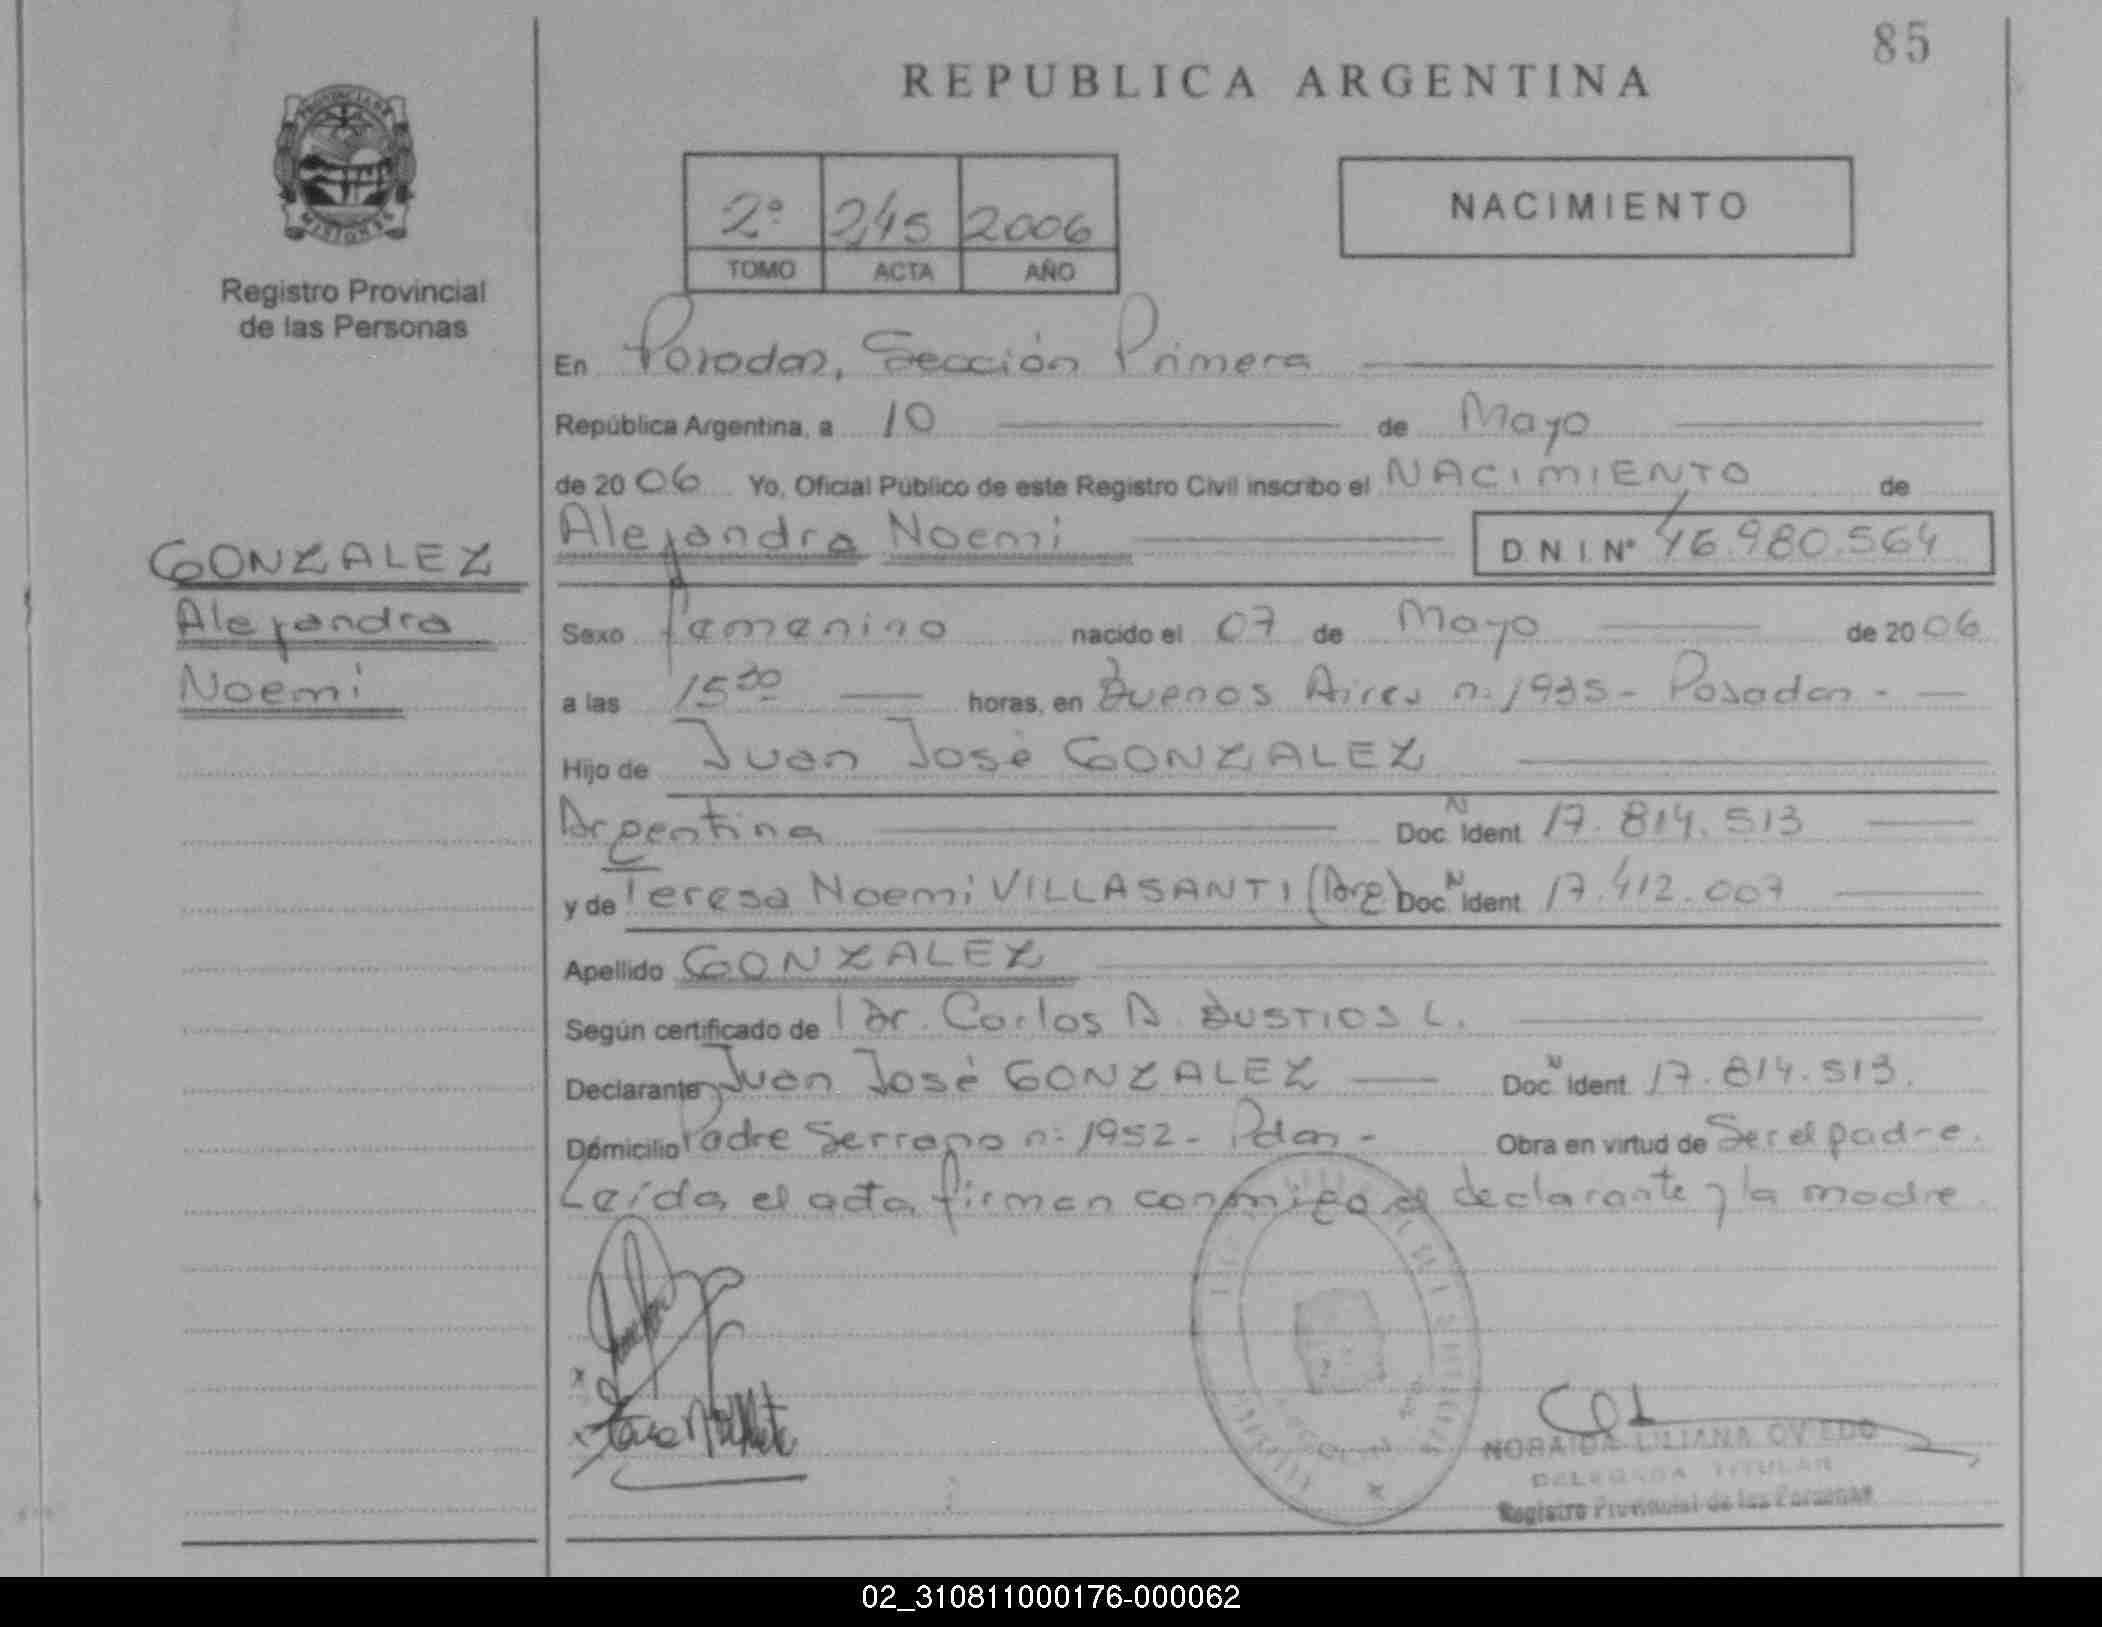 85
REPUBLICA ARGENTINA
PROVINCIA DE
MISIONES
Registro Provincial
de las Personas
2º 245 2006
TOMO ACTA AÑO
NACIMIENTO
En Posadas, Sección Primera
República Argentina, a 10 de Mayo
de 2006 Yo, Oficial Público de este Registro Civil inscribo el NACIMIENTO de
Alejandra Noemi D.N.I. Nº 46.980.564
GONZALEZ
Alejandra
Noemi
Sexo femenino nacido el 07 de Mayo de 2006
a las 15 30 horas, en Buenos Aires nº 1935 - Posadas -
Hijo de Juan José GONZALEZ
Argentina Doc. N Ident 17.814.513
y de Teresa Noemi VILLASANTI (Arg) Doc. N Ident 17.412.007
Apellido GONZALEZ
Según certificado de Dr. Carlos A. BUSTIOS L.
Declarante Juan José GONZALEZ Doc. N Ident. 17.814.513.
Domicilio Padre Serrano nº 1952 - Pdas - Obra en virtud de Ser el padre.
Leída el acta, firman conmigo el declarante y la madre.
NORAIDA LILIANA OVIEDO
DELEGADA TITULAR
Registro Provincial de las Personas
02_310811000176-000062